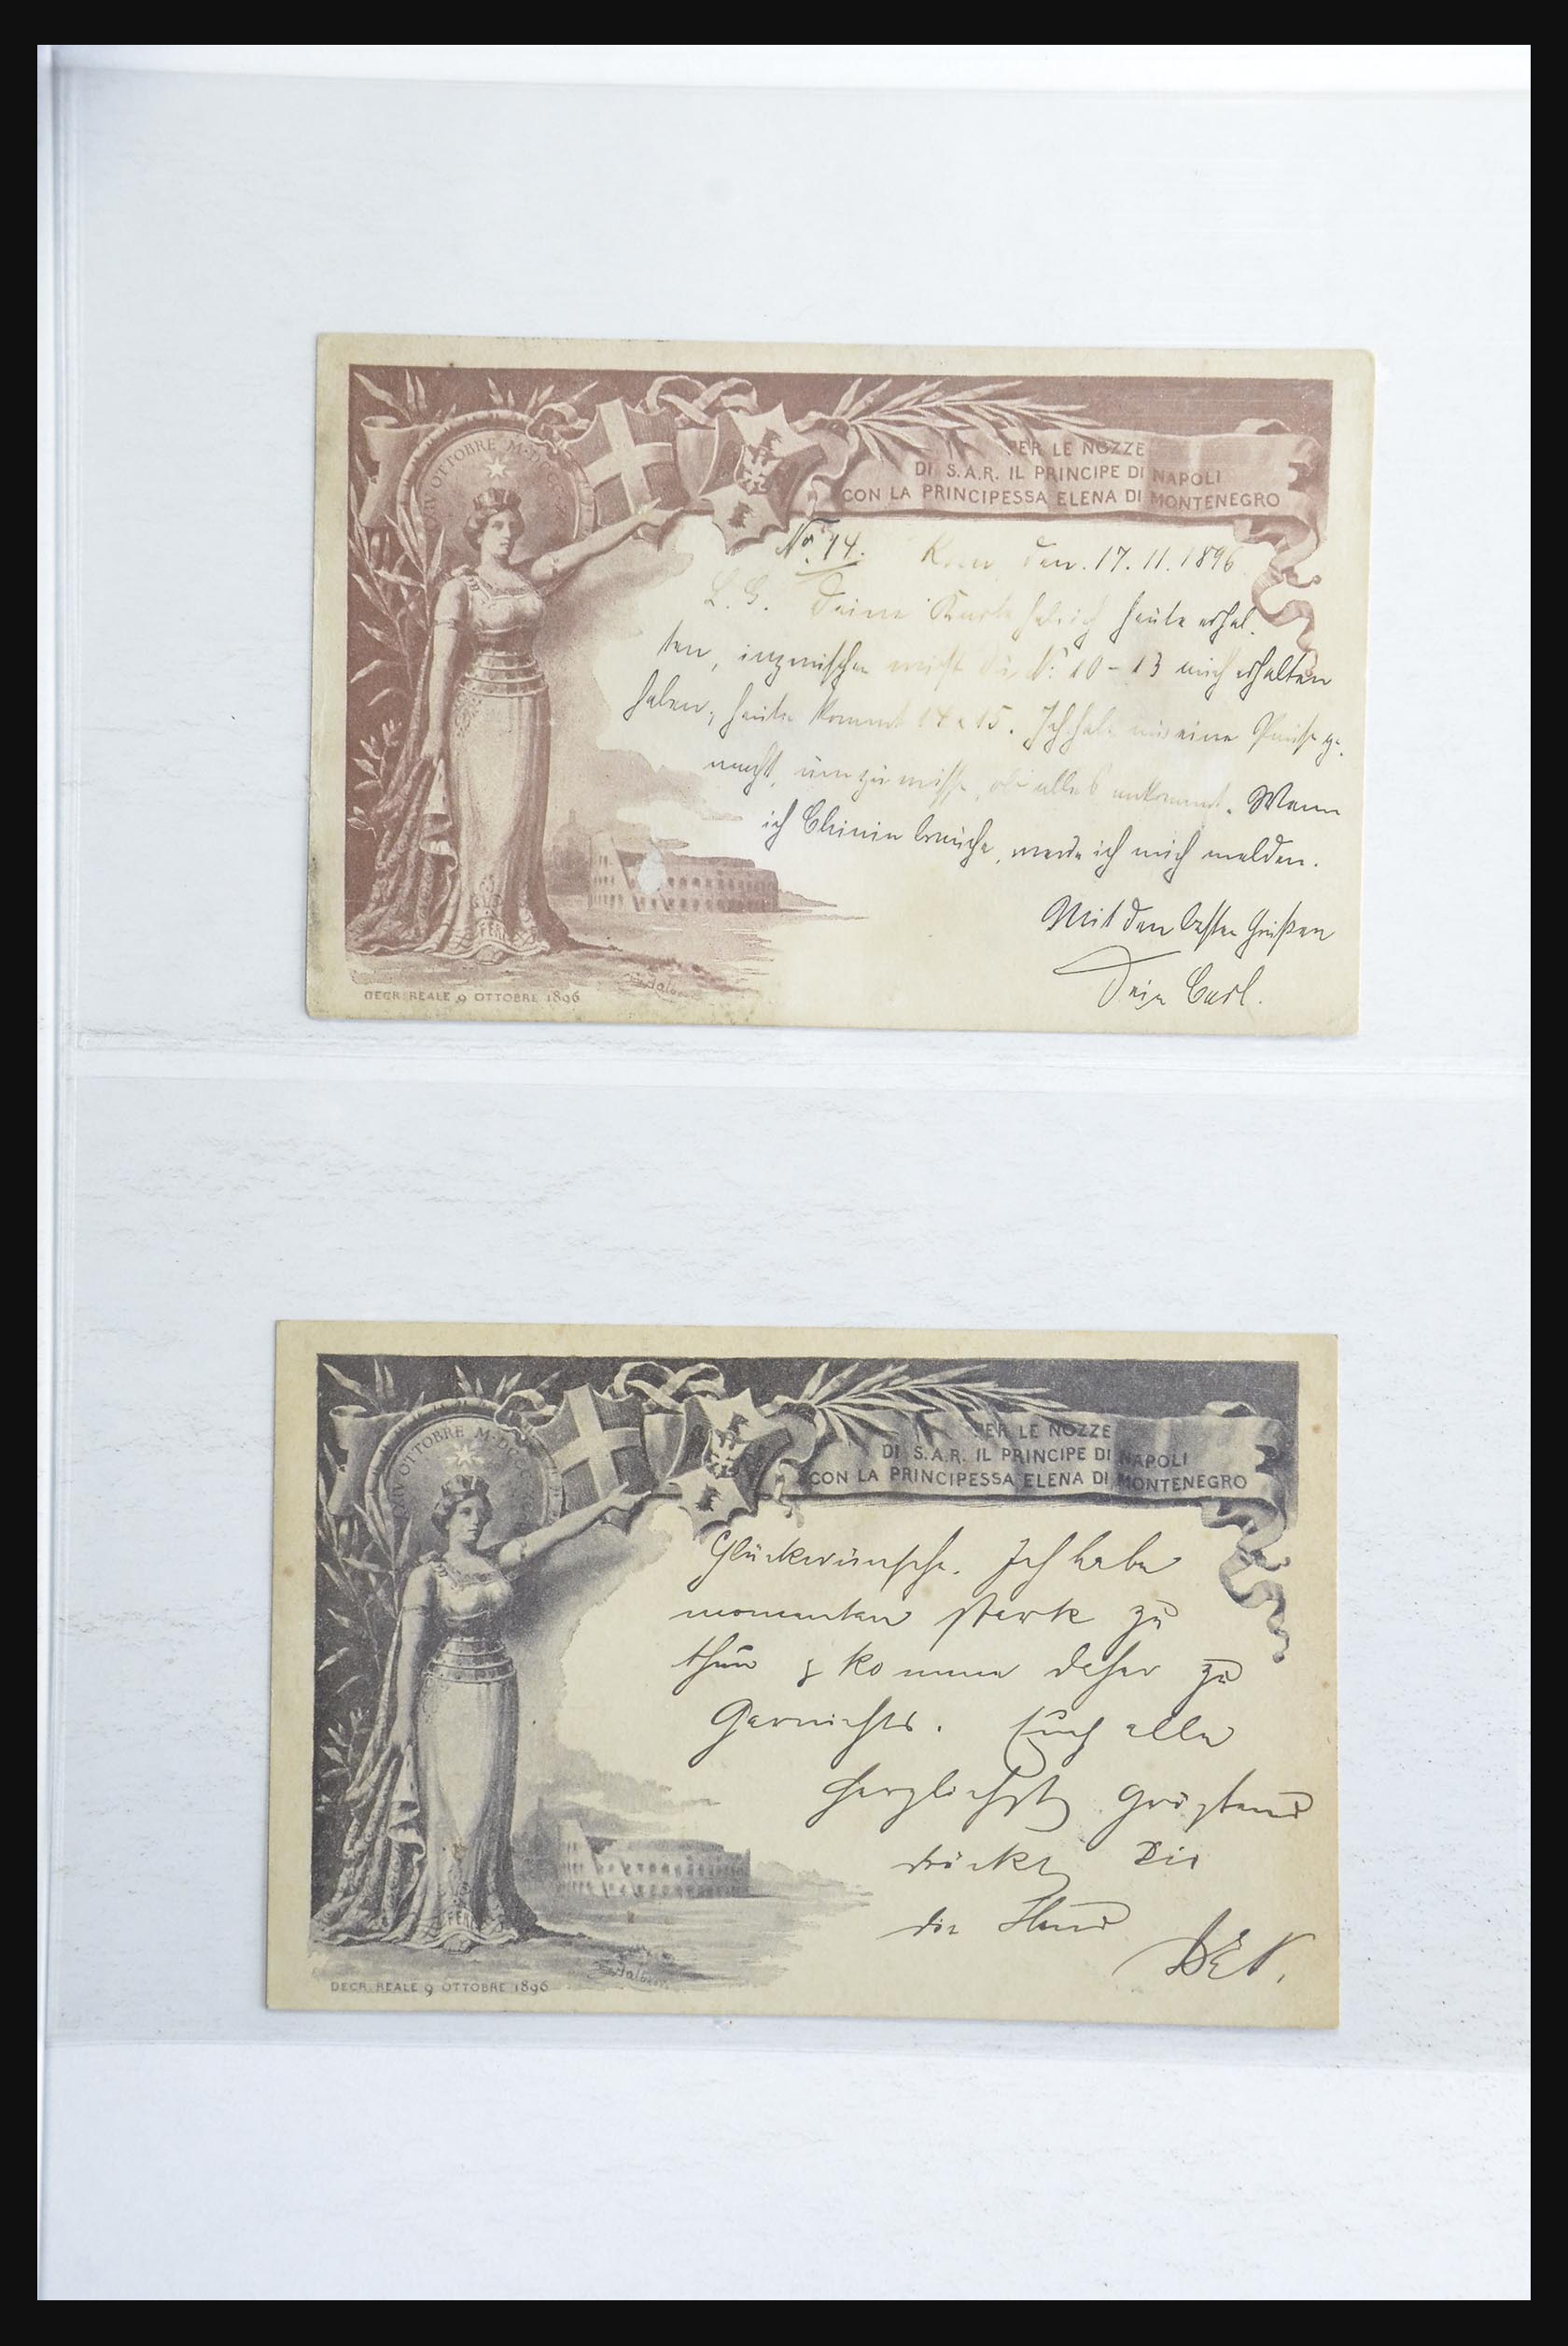 XIV OTTOBRE M·DCCC
PER LE NOZZE
DI S.A.R. IL PRINCIPE DI NAPOLI
CON LA PRINCIPESSA ELENA DI MONTENEGRO
No. 14. den 17. 11. 1896
L. G. Deine Karte hab ich heute erhal-
ten, inzwischen wirst Du No 10-13 auch erhalten
haben, heute kommt 14 u 15. Ich habe mir eine Pause ge-
macht, um zu wissen, ob alles ankommt. Wenn
ich Chinin brauche, werde ich mich melden.
Mit den besten Grüßen
Dein Carl.
FERT
DECR. REALE 9 OTTOBRE 1896
XIV OTTOBRE M·DCCC
PER LE NOZZE
DI S.A.R. IL PRINCIPE DI NAPOLI
CON LA PRINCIPESSA ELENA DI MONTENEGRO
Glückwünsche. Ich habe
momentan stark zu
thun & komme daher zu
Garnichts. Euch alle
herzlichst grüßend
drückt Dir
die Hand
FERT
DECR. REALE 9 OTTOBRE 1896